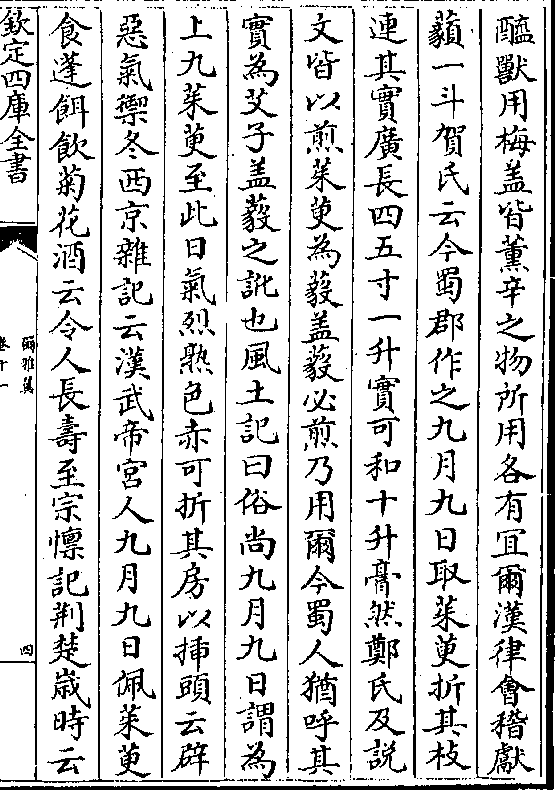 醢獸用梅盖皆薰辛之物所用各有宜爾漢律會稽獻
藙一斗賀氏云今蜀郡作之九月九日取茱萸折其枝
連其實廣長四五寸一升實可和十升膏然鄭氏及説
文皆以煎茱萸為藙盖藙必煎乃用爾今蜀人猶呼其
實為艾子盖藙之訛也風土記曰俗尚九月九日謂為
上九茱萸至此日氣烈熟色赤可折其房以揷頭云辟
惡氣禦冬西京雜記云漢武帝宮人九月九日佩茱萸
食蓬餌飲菊花酒云令人長壽至宗懔記荆楚歲時云
欽定四庫全書
爾雅翼
卷十一
四